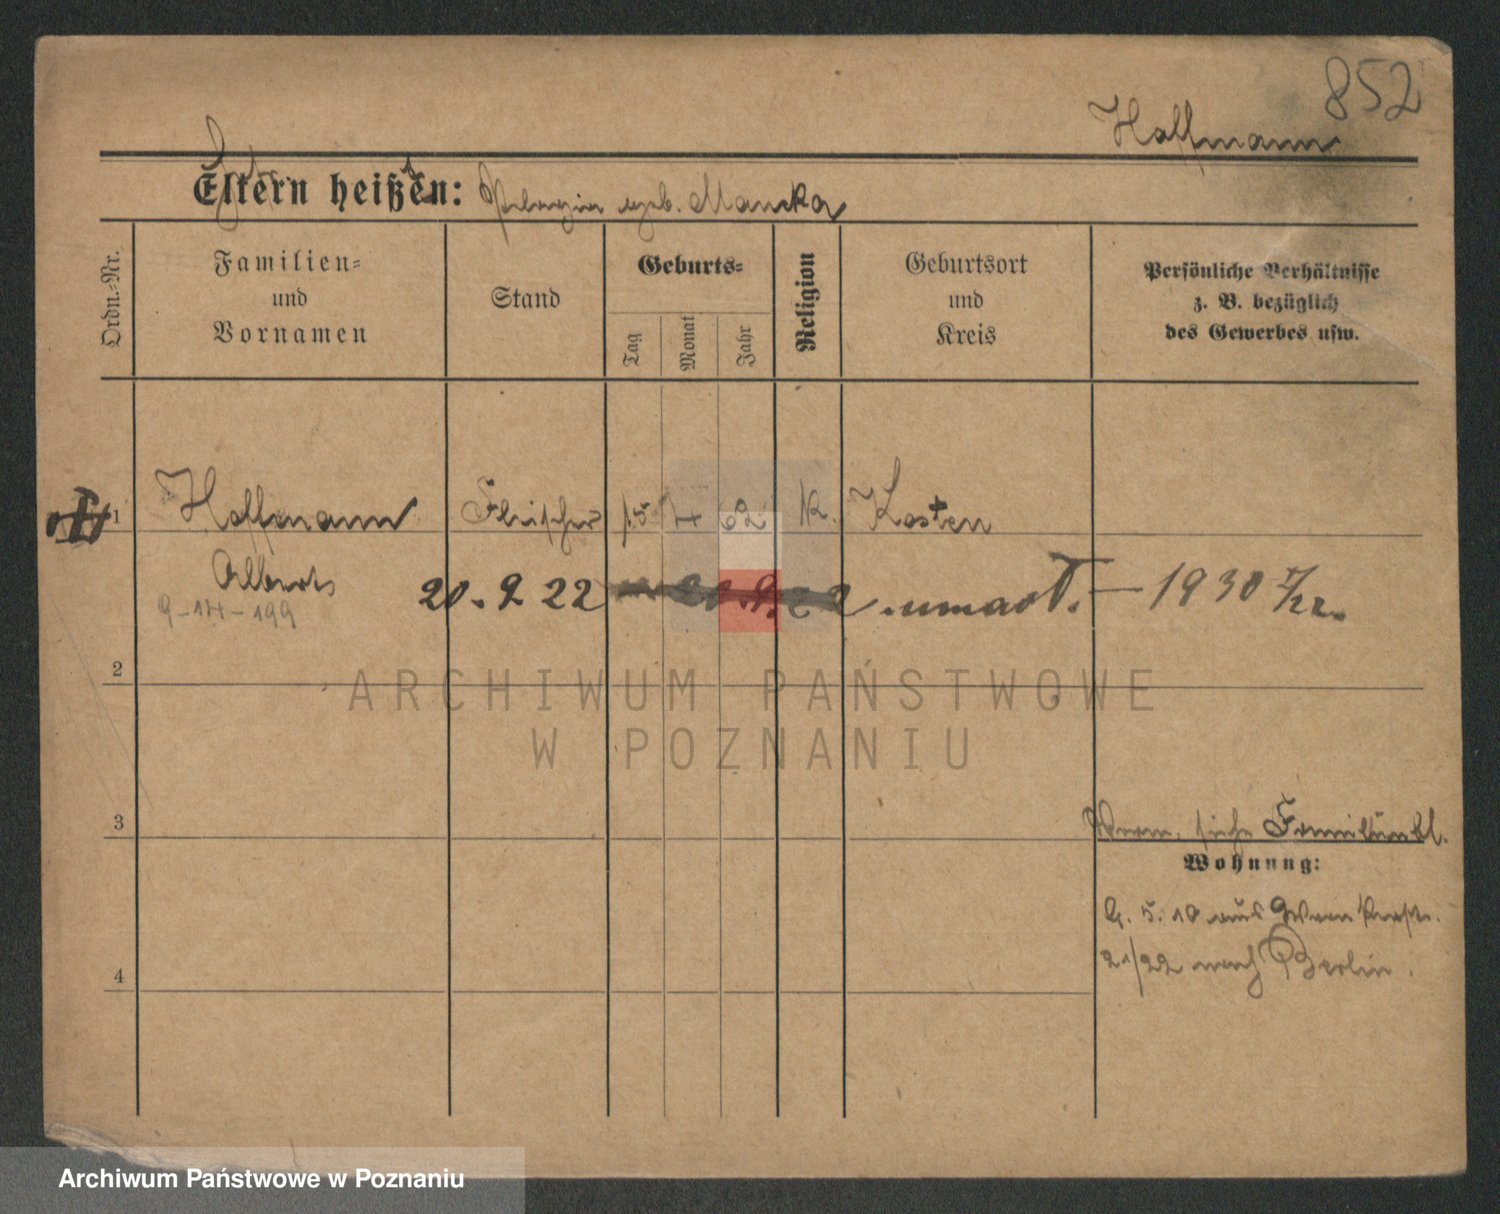 852
Hoffmann
Eltern heißen: Pelagia geb. Manska
Ordn.-Nr.
Familien-
und
Vornamen
Stand
Geburts-
Tag
Monat
Jahr
Religion
Geburtsort
und
Kreis
Persönliche Verhältnisse
z. B. bezüglich
des Gewerbes usw.
1 Hoffmann Fleischer 15 4 62 K. Kosten
Albert
20.9 22 umarł. – 1930
9-14-199
2
ARCHIWUM PAŃSTWOWE
W POZNANIU
3
siehe Familienbl.
Wohnung:
5. 10 aus
21/22 nach Berlin.
4
Archiwum Państwowe w Poznaniu